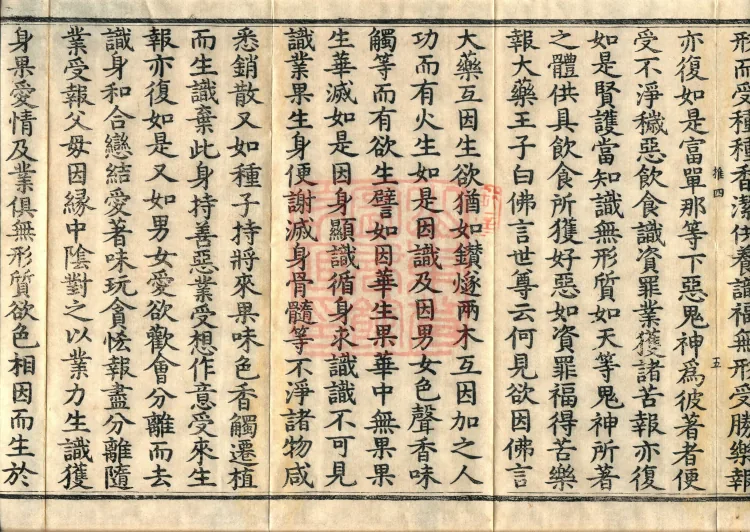 形而受種種香潔供養識福無形受勝樂報
推四 五
亦復如是富單那等下惡鬼神為彼著者便
受不淨穢惡飲食識資罪業獲諸苦報亦復
如是賢護當知識無形質如天等鬼神所著
之體供具飲食所獲好惡如資罪福得苦樂
報大藥王子白佛言世尊云何見欲因佛言
大藥互因生欲猶如鑽燧兩木互因加之人
功而有火生如是因識及因男女色聲香味
觸等而有欲生譬如因華生果華中無果果
生華滅如是因身顯識循身求識識不可見
識業果生身便謝滅身骨髓等不淨諸物咸
悉銷散又如種子持將來果味色香觸遷植
而生識棄此身持善惡業受想作意受來生
報亦復如是又如男女愛欲歡會分離而去
識身和合戀結愛著味玩貪悋報盡分離隨
業受報父母因緣中陰對之以業力生識獲
身果愛情及業俱無形質欲色相因而生於